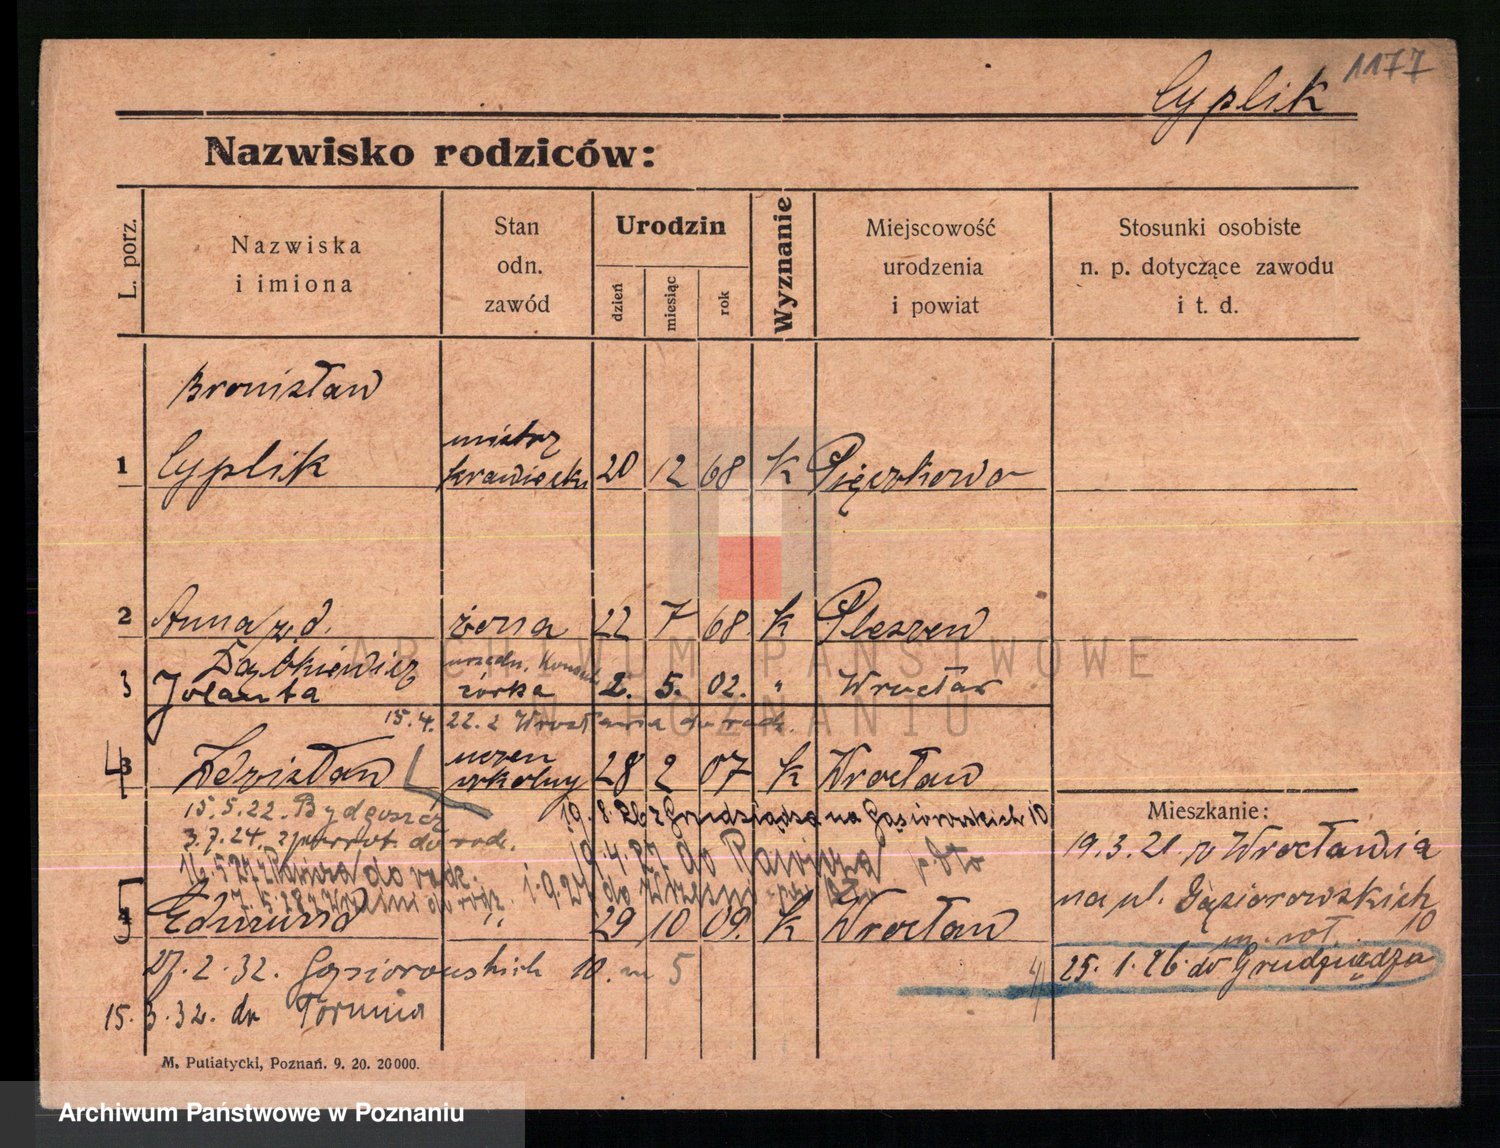 1177
Cyplik
Nazwisko rodziców:
L. porz.
Nazwiska
i imiona
Stan
odn.
zawód
Urodzin
dzień
miesiąc
rok
Wyznanie
Miejscowość
urodzenia
i powiat
Stosunki osobiste
n. p. dotyczące zawodu
i t. d.
Bronisław
1 Cyplik mistrz krawiecki 20 12 68 K Pięczkowo
2 Anna z d. żona 22 7 68 k Pleszew
Dąbkiewicz urzędn.
3 Jolanta córka 2. 5. 02. " Wrocław
15.4.22. z Wrocławia do rodz.
4 Zdzisław uczen szkolny 28 2 07 k Wrocław
15.5.22. Bydgoszcz 19.8.26 z Grudziądza na Gąsiorowskich 10
3.7.24. z powrot. do rodz.
19.4.27 do Rawicza
do rodz. 1.9.27 do Wrześni
5 Edmund " 29 10 09. k Wrocław
27.2.32. Gąsiorowskich 10. m 5
15.3.32. do Torunia
Mieszkanie:
19.3.21. z Wrocławia
na ul. Gąsiorowskich
10
25.1.26. do Grudziądza
M. Putiatycki, Poznań. 9. 20. 20000.
ARCHIWUM PAŃSTWOWE
W POZNANIU
Archiwum Państwowe w Poznaniu